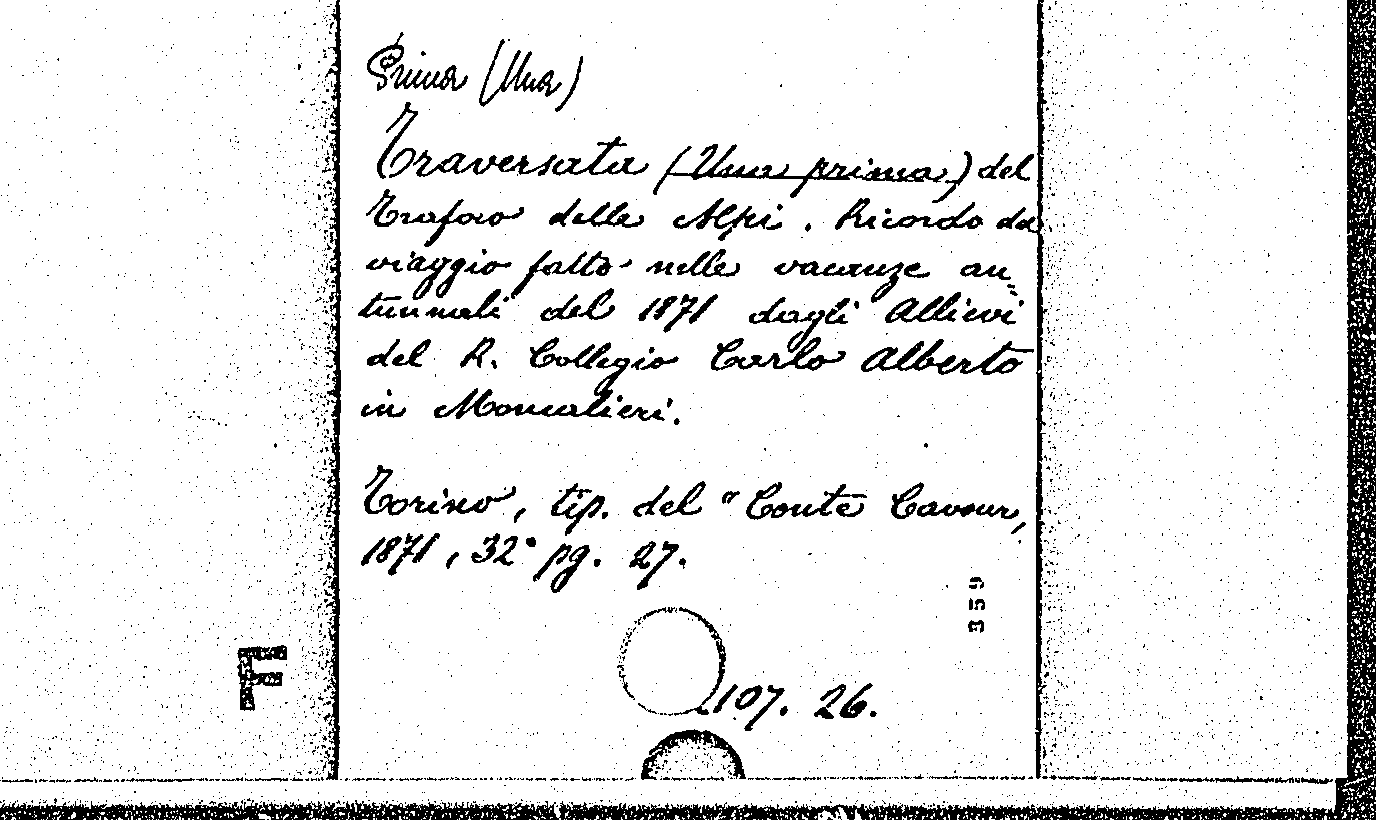 Prima (Una)
Traversata (Una prima) del
Traforo delle Alpi. Ricordo da
viaggio fatto nelle vacanze au=
tunnali del 1871 dagli Allievi
del R. Collegio Carlo Alberto
in Moncalieri.
Torino, tip. del "Conte Cavour,
1871, 32° pg. 27.
359
F
107. 26.